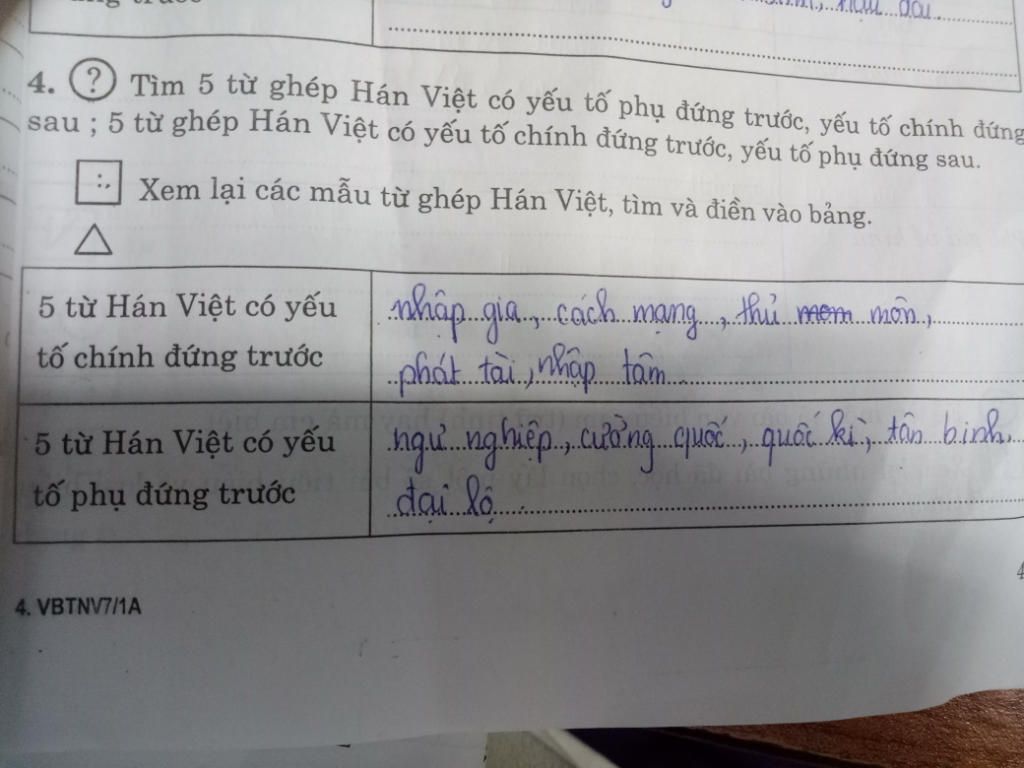 4. ? Tìm 5 từ ghép Hán Việt có yếu tố phụ đứng trước, yếu tố chính đứng
sau ; 5 từ ghép Hán Việt có yếu tố chính đứng trước, yếu tố phụ đứng sau.
Xem lại các mẫu từ ghép Hán Việt, tìm và điền vào bảng.
5 từ Hán Việt có yếu
tố chính đứng trước
nhập gia, cách mạng, thủ môn,
phát tài, nhập tâm
5 từ Hán Việt có yếu
tố phụ đứng trước
ngư nghiệp, cường quốc, quốc kì, tân binh
đại lộ
4. VBTNV7/1A